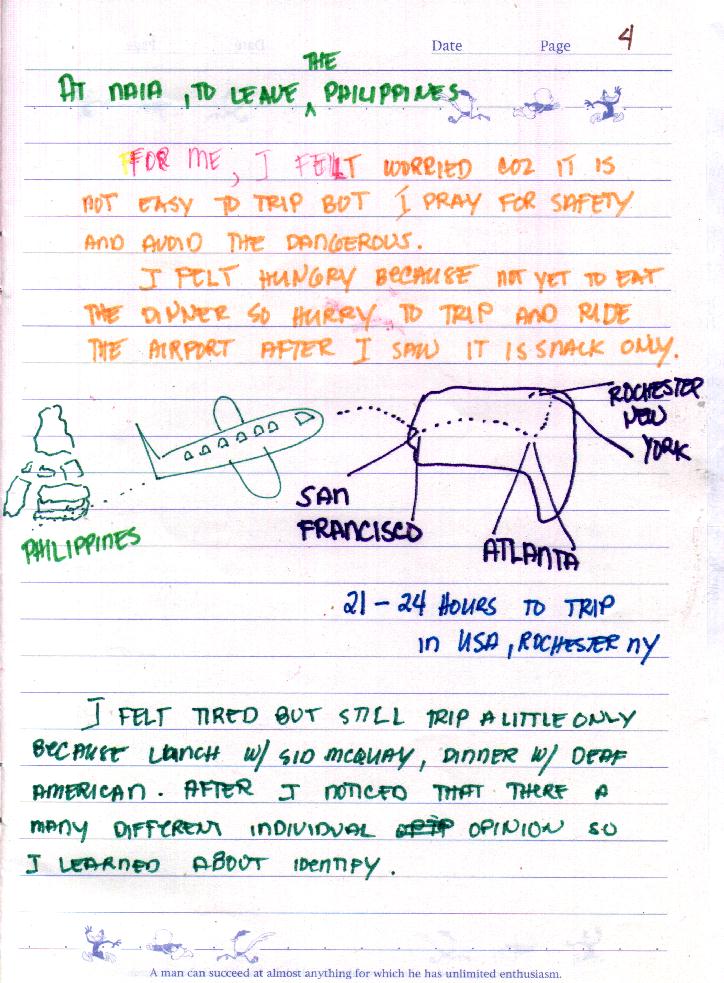 Date Page 4
THE
AT NAIA, TO LEAVE ^ PHILIPPINES
FOR ME, I FELT WORRIED COZ IT IS
NOT EASY TO TRIP BUT I PRAY FOR SAFETY
AND AVOID THE DANGEROUS.
I FELT HUNGRY BECAUSE NOT YET TO EAT
THE DINNER SO HURRY TO TRIP AND RIDE
THE AIRPORT AFTER I SAW IT IS SNACK ONLY.
ROCHESTER
NEW
YORK
SAN
FRANCISCO
ATLANTA
PHILIPPINES
21-24 HOURS TO TRIP
IN USA, ROCHESTER NY
I FELT TIRED BUT STILL TRIP A LITTLE ONLY
BECAUSE LUNCH W/ SID MCQUAY, DINNER W/ DEAF
AMERICAN. AFTER I NOTICED THAT THERE A
MANY DIFFERENT INDIVIDUAL OPINION SO
I LEARNED ABOUT IDENTIFY.
A man can succeed at almost anything for which he has unlimited enthusiasm.